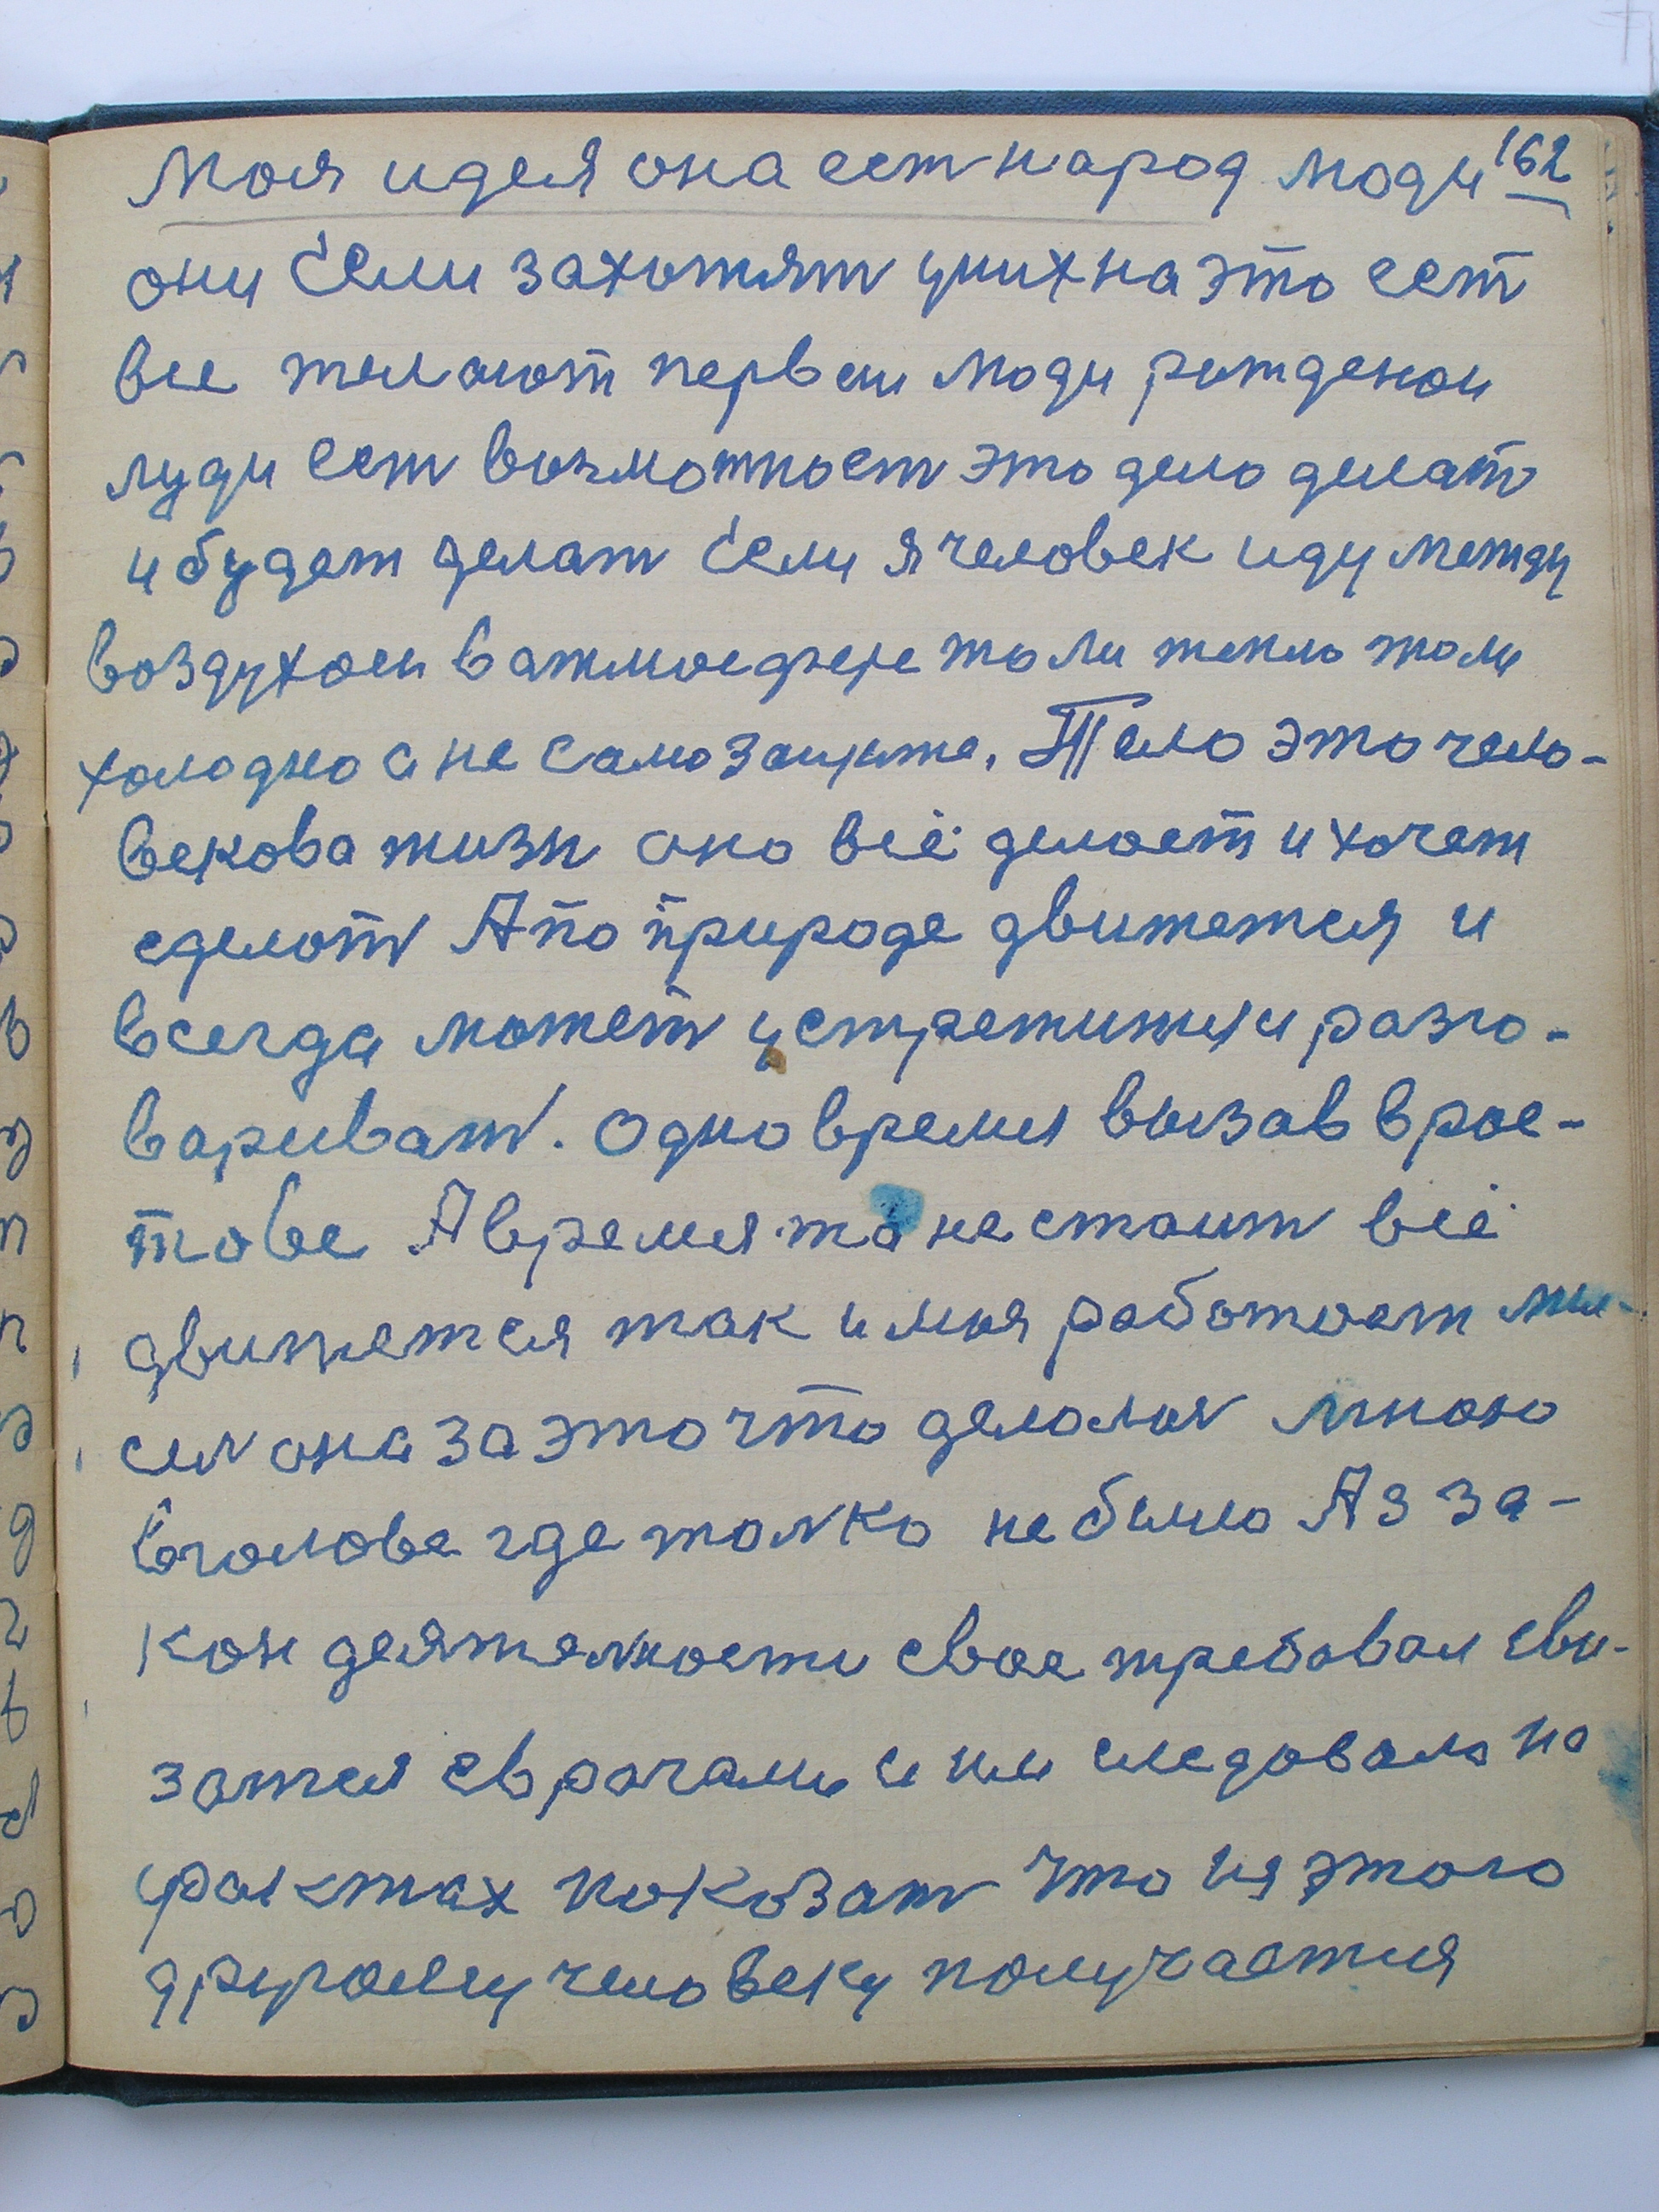 Моя идея она ест народ люди 162
они если захотят уних на это ест
все желают первои люди рожденои
луди ест возможност это дело делат
и будет делат если я человек иду между
воздухом в атмосфере то ли тепло толи
холодно а не самозащита. Тело это чело-
векова жизн оно всё делает и хочет
сделат А по природе движется и
всегда может устретится и разго-
вариват. Одно время вызав в рос-
тове А время то не стоит всё
движется так и моя работает мы-
сел она за это что делалоя мною
в голове где толко не было Аз за-
кон деятелности свое требовал свя-
затся сврачами и им следовало на
фактах показат что из этого
другому человеку получается